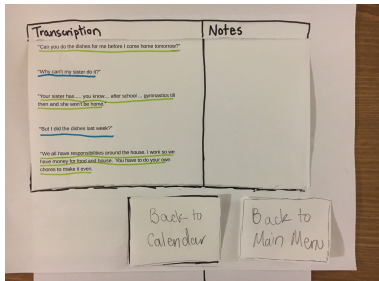 Transcription
Notes
"Can you do the dishes for me before I come home tomorrow?"
"Why can't my sister do it?"
"Your sister has..... you know... after school... gymnastics till
then and she won't be home."
"But I did the dishes last week?"
"We all have responsibilities around the house. I work so we
have money for food and house. You have to do your own
chores to make it even.
Back to
Calendar
Back to
Main Menu